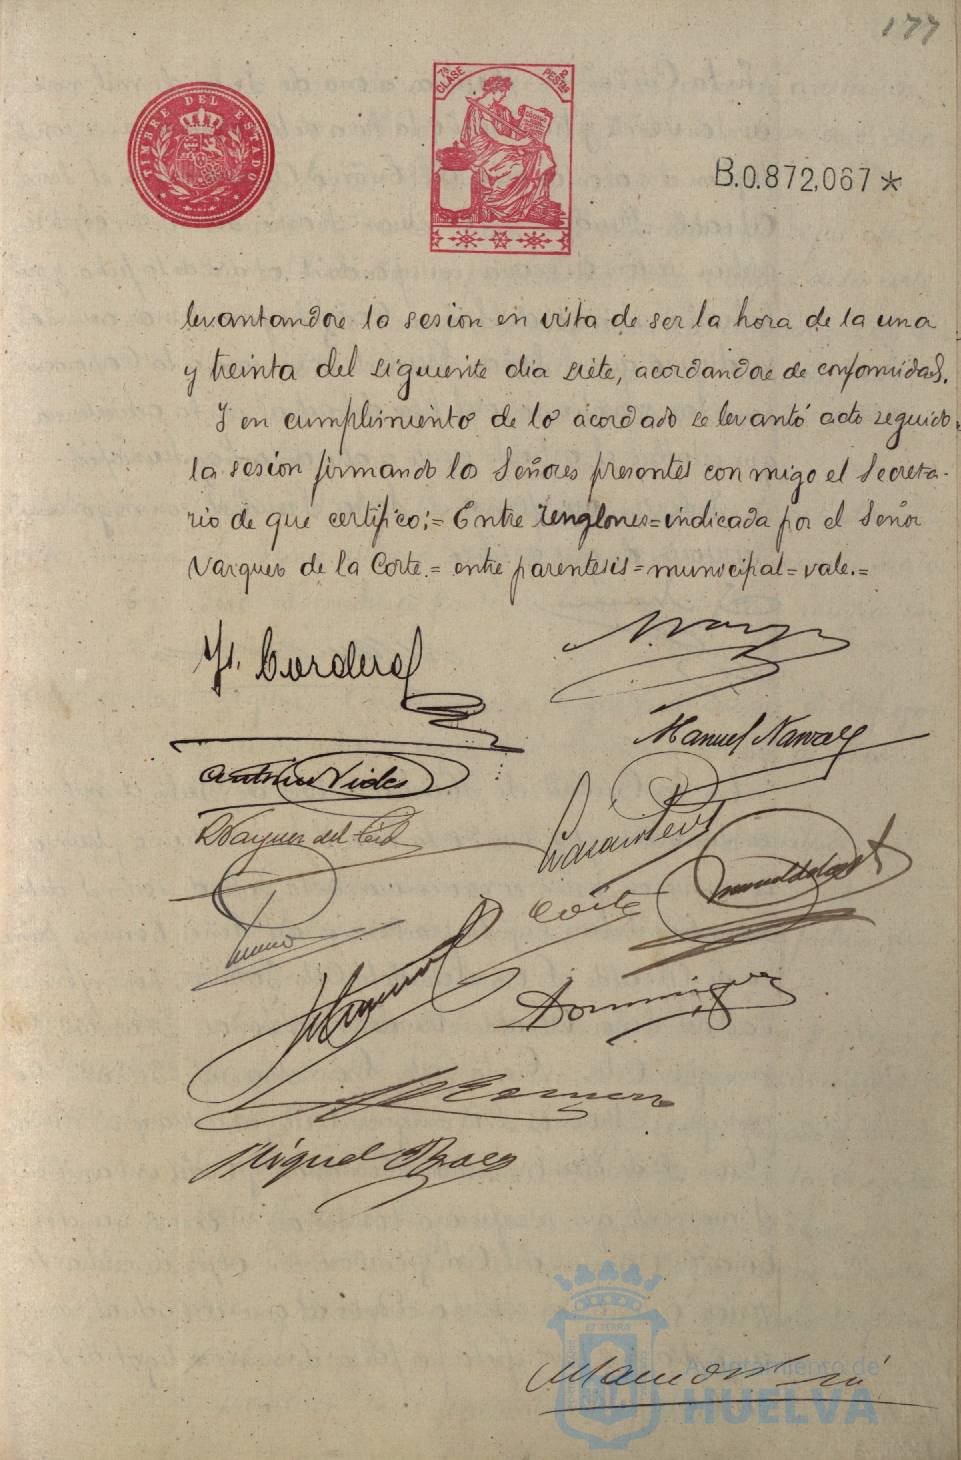 177
TIMBRE DEL ESTADO
7ª CLASE
2 PESTAS
B.0.872,067 *
levantandose la sesion en vista de ser la hora de la una
y treinta del siguiente dia siete, acordandose de conformidad.
Y en cumplimiento de lo acordado se levantó acto seguido
la sesion firmando los Señores presentes conmigo el Secreta-
rio de que certifico:= Entre renglones=indicada por el Señor
Vazquez de la Corte.= entre parentesis=municipal=vale.=
Cordero
Manuel Narvaez
Antonio Vides
Vazquez del Cid
Corte
Dominguez
Romero
Miguel Baez
Ayuntamiento de
HUELVA